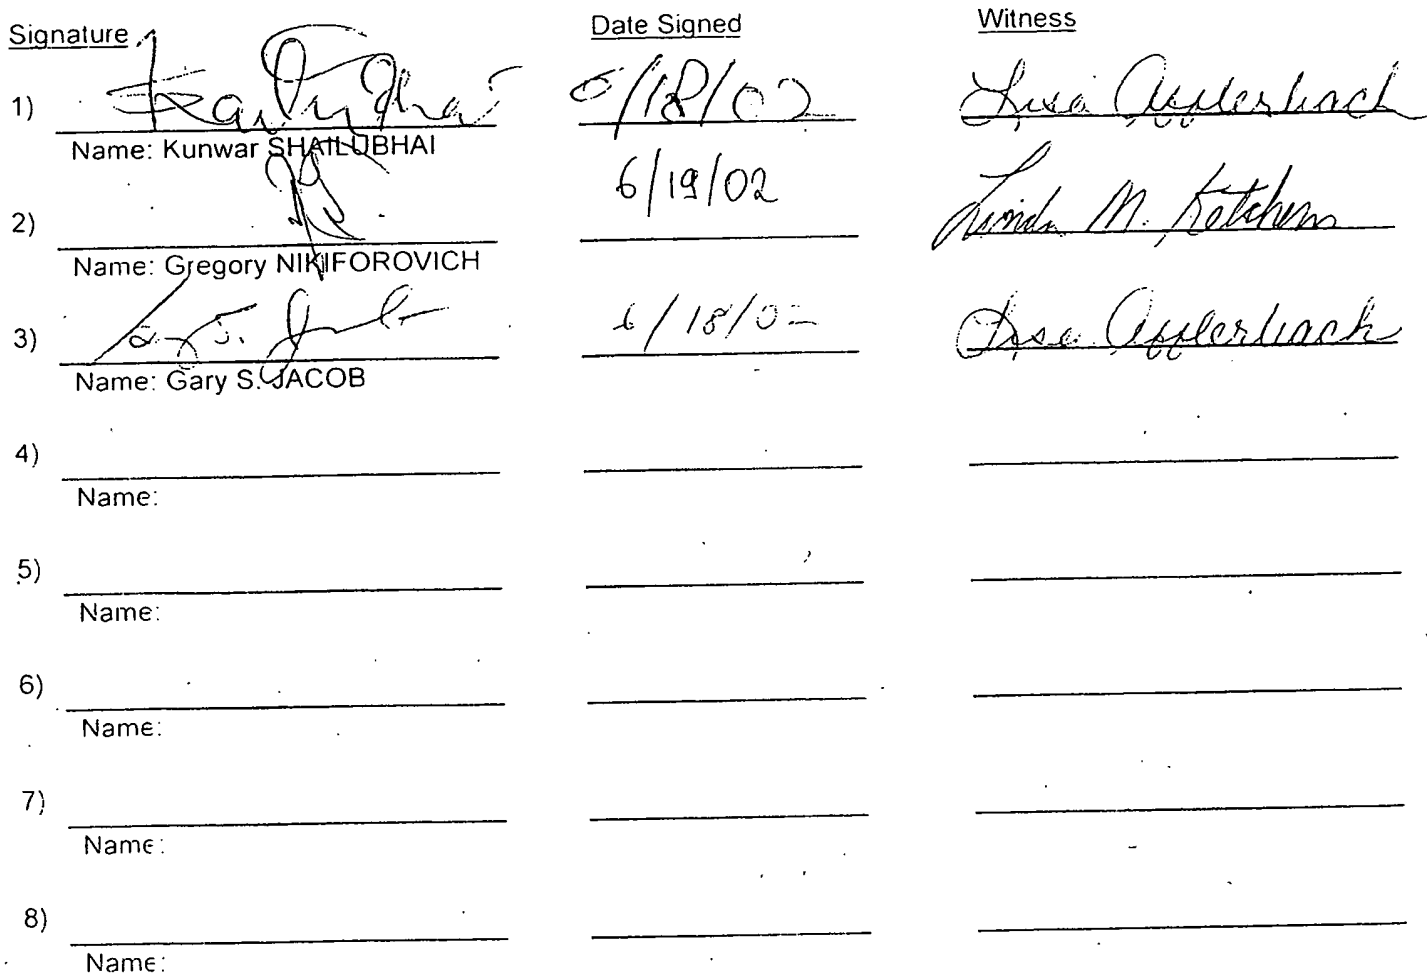 Signature Date Signed Witness
1) /18/02 Lisa Afflerbach
Name: Kunwar SHAILUBHAI
2) 6/19/02 Linda M. Ketchem
Name: Gregory NIKIFOROVICH
3) 6/18/02 Lisa Afflerbach
Name: Gary S. JACOB
4)
Name:
5)
Name:
6)
Name:
7)
Name:
8)
Name: